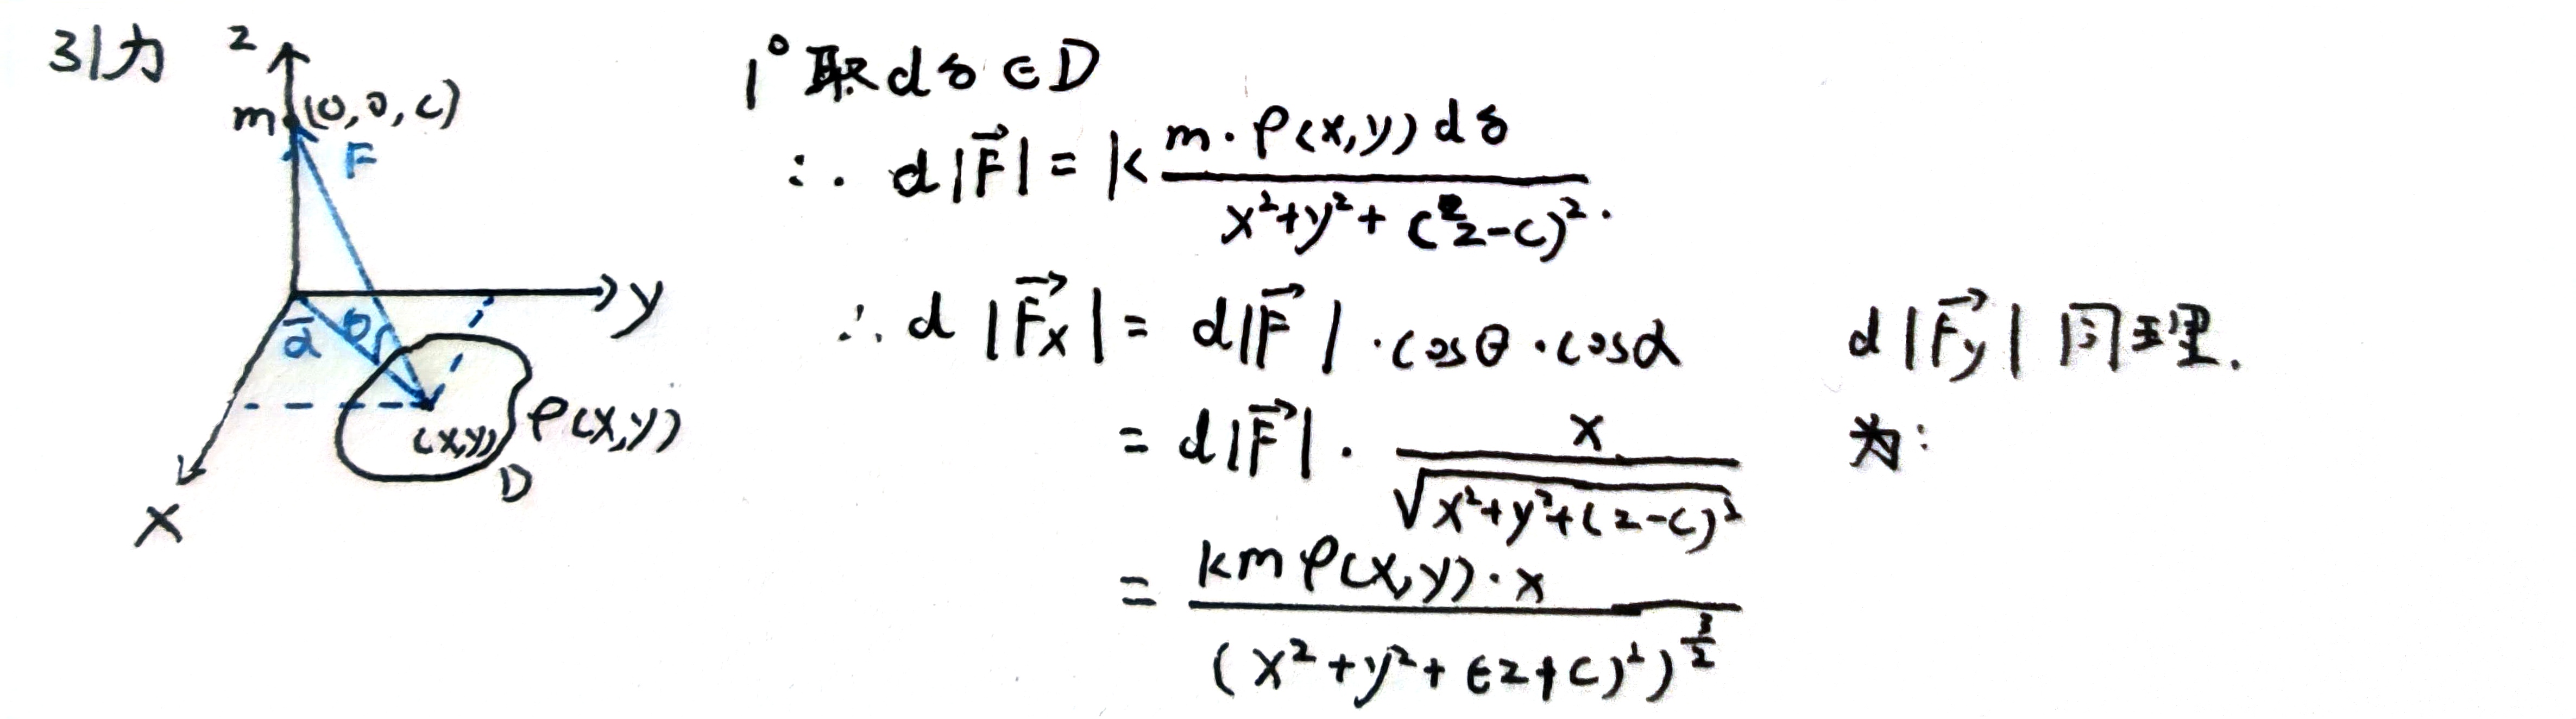 引力
z
m (0,0,c)
F
y
α θ
(x,y) ρ(x,y)
D
x
1° 取dδ∈D
∴ d|F⃗| = k m·ρ(x,y)dδ / x²+y²+(z-c)².
∴ d|F⃗x| = d|F⃗|·cosθ·cosα d|F⃗y|同理.
= d|F⃗|· x / √x²+y²+(z-c)² 为:
= kmρ(x,y)·x / (x²+y²+(z+c)²)^(3/2)